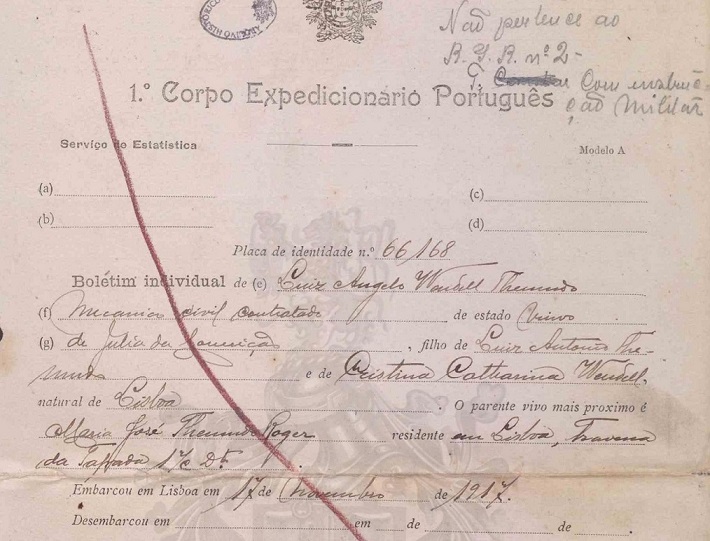 ARQUIVO HISTÓRICO
Não pertence ao
R. G. R. nº 2-
Com instruc-
ção Militar
1.º Corpo Expedicionário Português
Serviço de Estatística
Modelo A
(a)
(c)
(b)
(d)
Placa de identidade n.º 66168
Bolétim individual de (e) Luiz Angelo Wendell Themudo
(f) Mecanico civil contratado de estado Viuvo
(g) de Julia da Conceição, filho de Luiz Antonio The-
mudo e de Christina Catharina Wendell.
natural de Lisboa. O parente vivo mais proximo é
Maria José Themudo Roger residente em Lisboa, Travessa
da Tapada 17 Dt.
Embarcou em Lisboa em 17 de Novembro de 1917.
Desembarcou em em de de